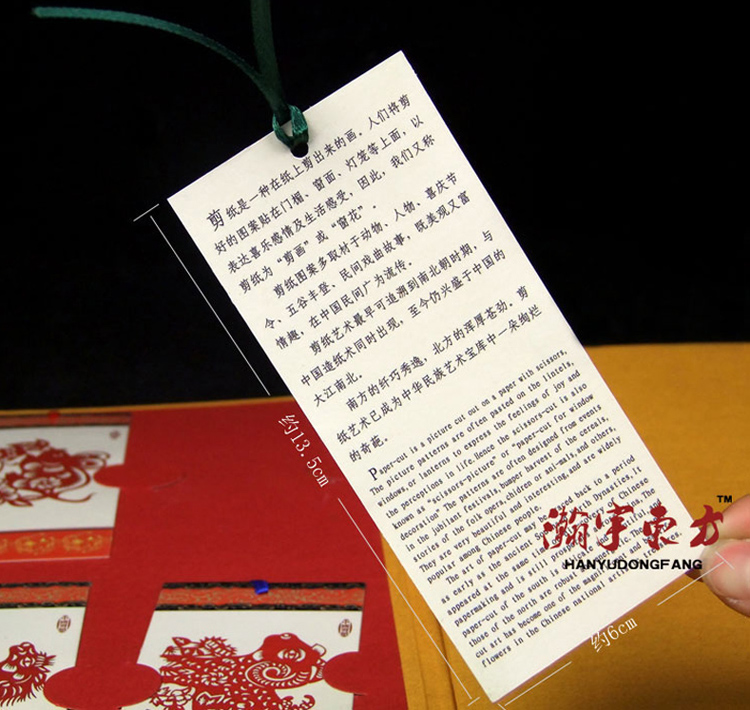 剪纸是一种在纸上剪出来的画。人们将剪
好的图案贴在门楣、窗面、灯笼等上面，以
表达喜乐感情及生活感受，因此，我们又称
剪纸为“剪画”或“窗花”。
剪纸图案多取材于动物、人物、喜庆节
令、五谷丰登、民间戏曲故事，既美观又富
情趣，在中国民间广为流传。
剪纸艺术最早可追溯到南北朝时期，与
中国造纸术同时出现，至今仍兴盛于中国的
大江南北。
南方的纤巧秀逸，北方的浑厚苍劲。剪
纸艺术已成为中华民族艺术宝库中一朵绚烂
的奇葩。
Paper-cut is a picture cut out on a paper with scissors,
The picture patterns are often pasted on the lintels,
windows, or lanterns to express the feelings of joy and
the perceptions in life. Hence the scissors-cut is also
known as "scissors-picture" or "paper-cut for window
decoration" The patterns are often designed from events
in the jubilant festivals, bumper harvest of the cereals,
stories of the folk opers, children or ani-mals, and others,
They are very beautiful and interesting, and are widely
popular among Chinese people.
The art of paper-cut may be traced back to a period
as early as the ancient Sou Dynasties. It
appeared at the same time Chinese
papermaking and is still prosper The
paper-cut of the south is delicate and
those of the north are robust The
cut art has become one of the magnificent and
flowers in the Chinese national artistic treasures.
约13.5cm
约6cm
瀚宇东方
TM
HANYUDONGFANG